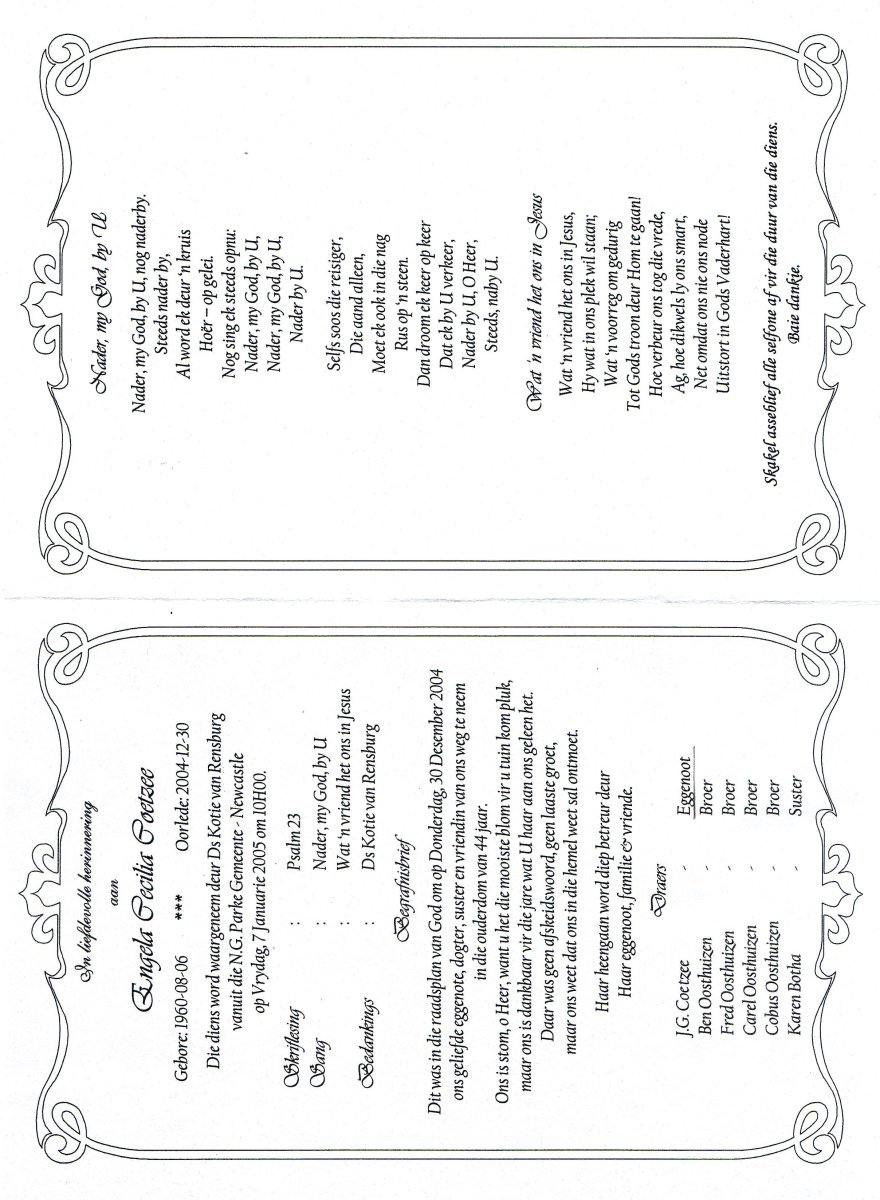 In liefdevolle herinnering
aan
Engela Cecilia Coetzee
Gebore: 1960-08-06 *** Oorlede: 2004-12-30
Die diens word waargeneem deur Ds Kotie van Rensburg
vanuit die N.G. Parke Gemeente - Newcastle
op Vrydag, 7 Januarie 2005 om 10H00.
Skriflesing : Psalm 23
Sang : Nader, my God, by U
Wat 'n vriend het ons in Jesus
Bedankings : Ds Kotie van Rensburg
Begrafnisbrief
Dit was in die raadsplan van God om op Donderdag, 30 Desember 2004
ons geliefde eggenote, dogter, suster en vriendin van ons weg te neem
in die ouderdom van 44 jaar.
Ons is stom, o Heer, want u het die mooiste blom vir u tuin kom pluk,
maar ons is dankbaar vir die jare wat U haar aan ons geleen het.
Daar was geen afskeidswoord, geen laaste groet,
maar ons weet dat ons in die hemel weet sal ontmoet.
Haar heengaan word diep betreur deur
Haar eggenoot, familie & vriende.
Draers
J.G. Coetzee - Eggenoot
Ben Oosthuizen - Broer
Fred Oosthuizen - Broer
Carel Oosthuizen - Broer
Cobus Oosthuizen - Broer
Karen Botha - Suster
Nader, my God, by U
Nader, my God, by U, nog naderby.
Steeds nader by,
Al word ek deur 'n kruis
Hoër – op gelei.
Nog sing ek steeds opnu:
Nader, my God, by U,
Nader, my God, by U,
Nader by U.
Selfs soos die reisiger,
Die aand alleen,
Moet ek ook in die nag
Rus op 'n steen.
Dan droom ek keer op keer
Dat ek by U verkeer,
Nader by U, O Heer,
Steeds, naby U.
Wat 'n vriend het ons in Jesus
Wat 'n vriend het ons in Jesus,
Hy wat in ons plek wil staan;
Wat 'n voorreg om gedurig
Tot Gods troon deur Hom te gaan!
Hoe verbeur ons tog die vrede,
Ag, hoe dikwels ly ons smart,
Net omdat ons nie ons node
Uitstort in Gods Vaderhart!
Skakel asseblief alle selfone af vir die duur van die diens.
Baie dankie.